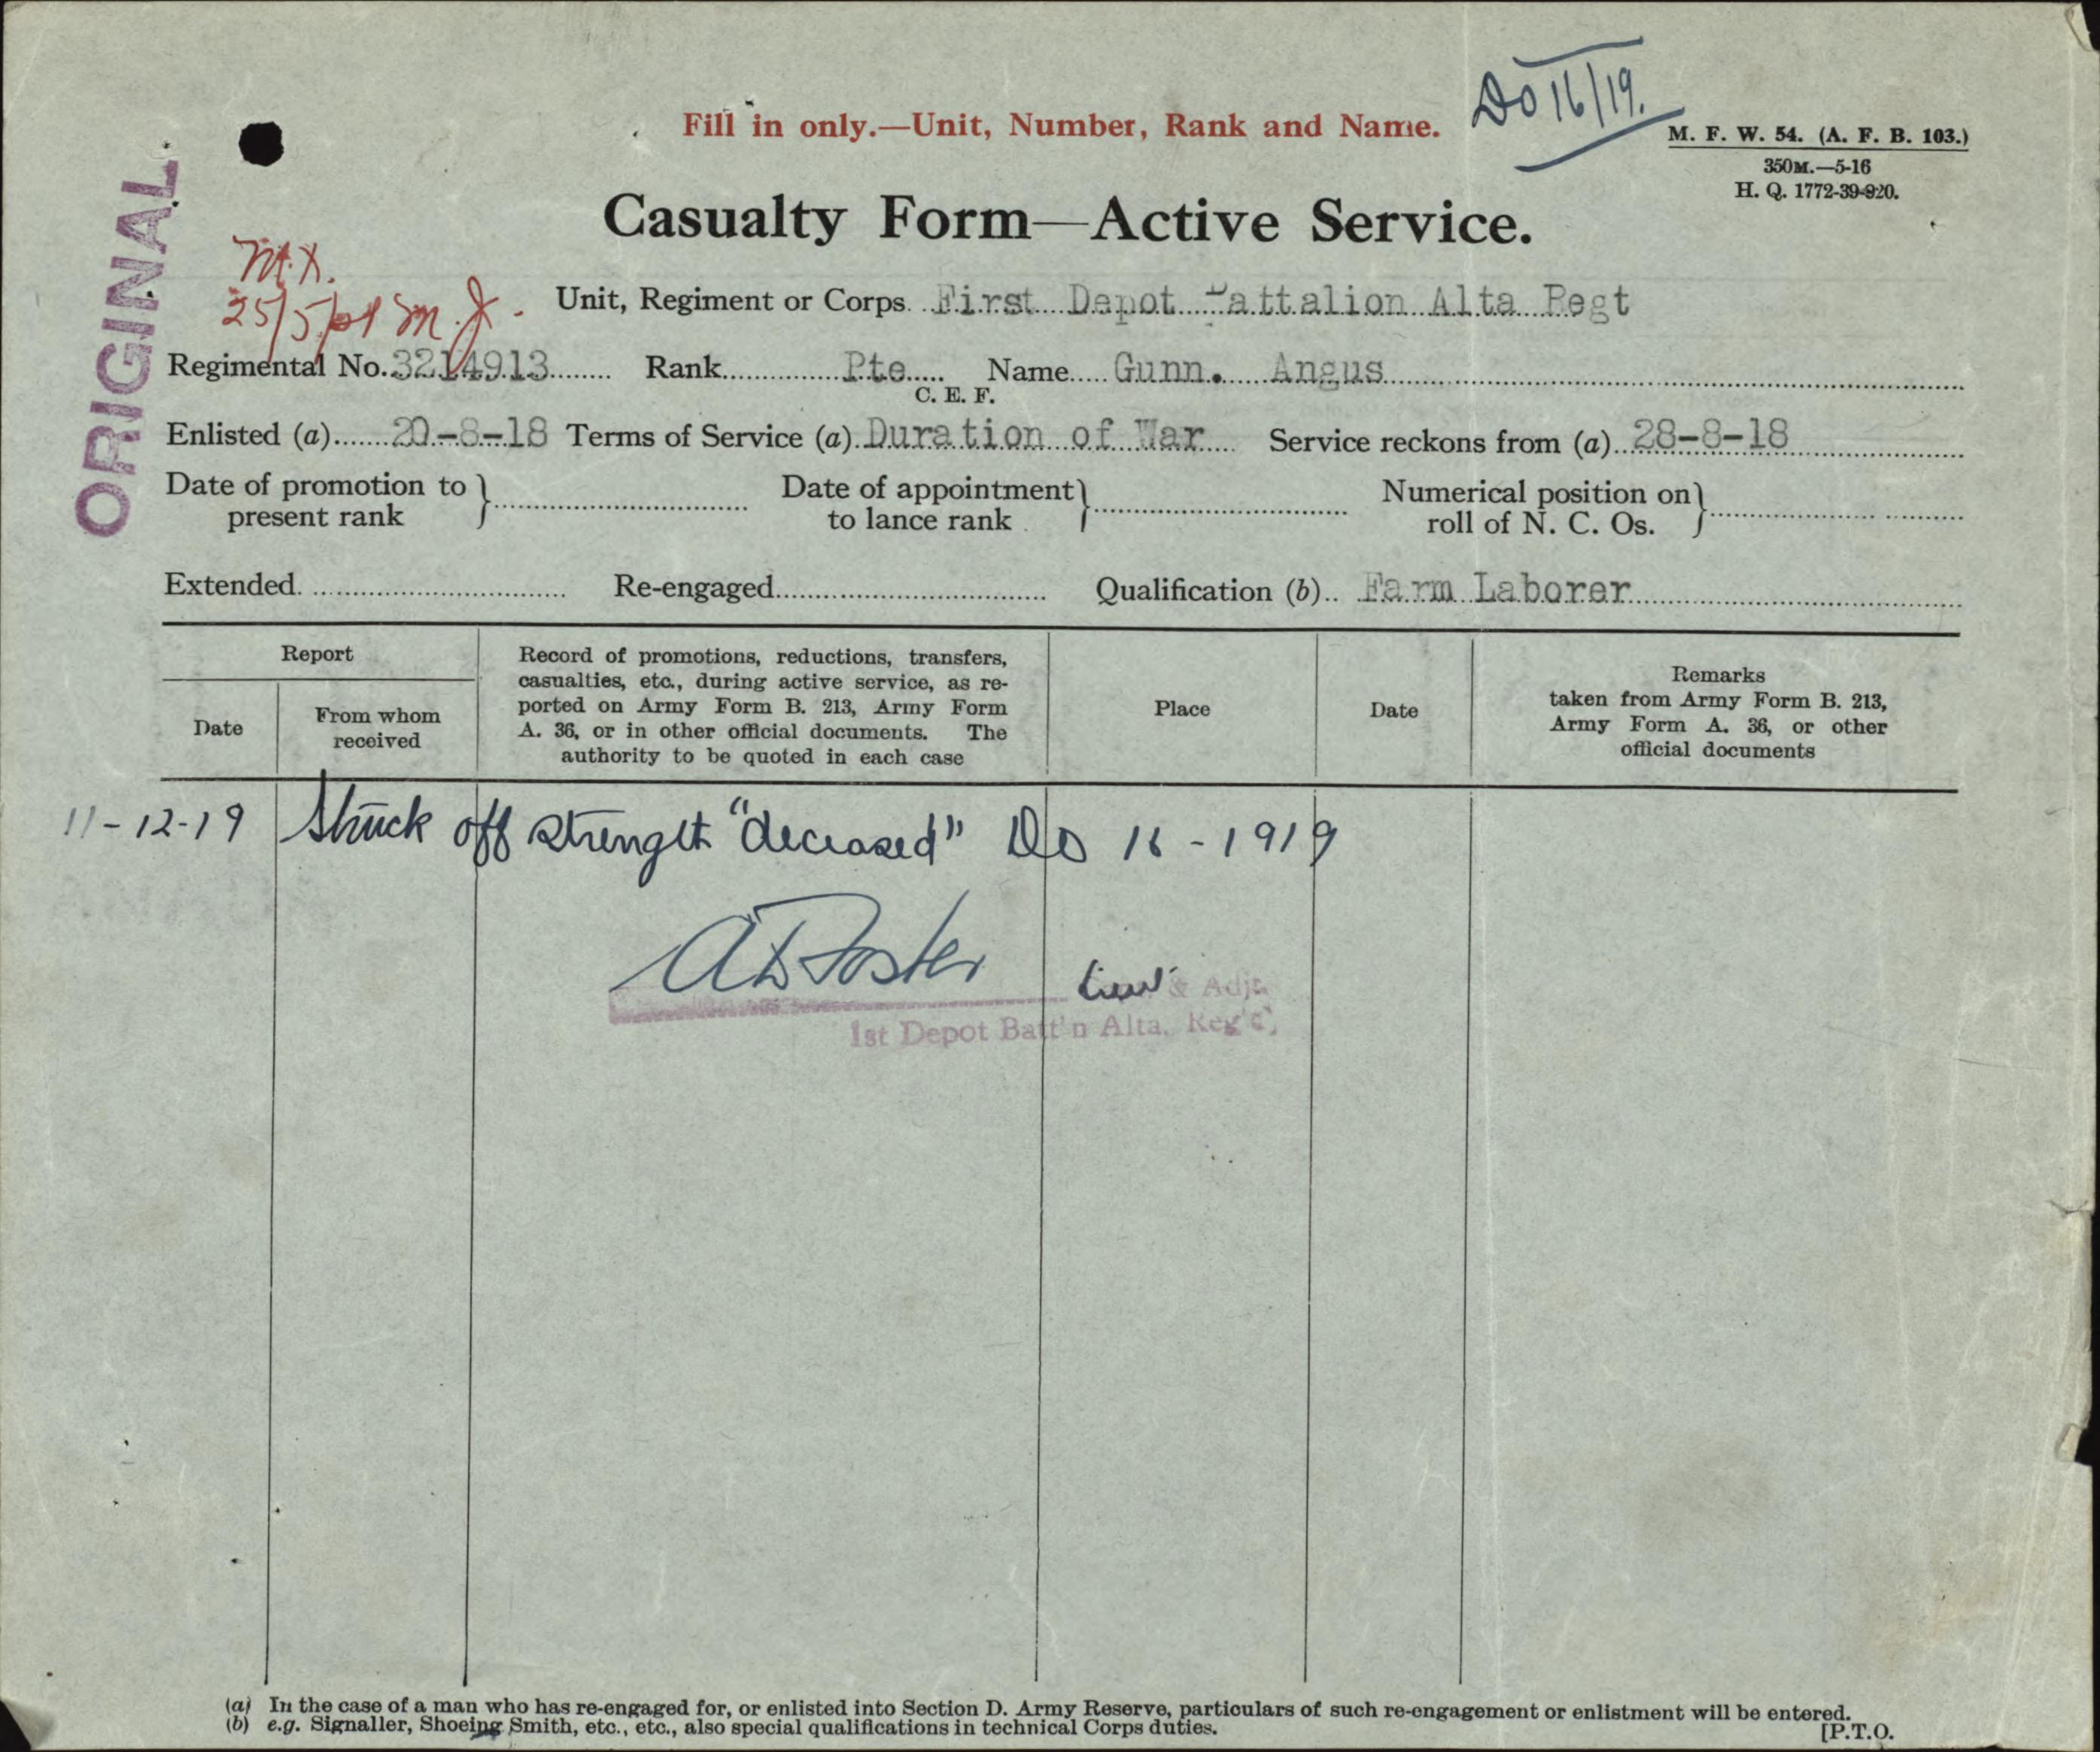 DO 16/19.
Fill in only.—Unit, Number, Rank and Name.
M. F. W. 54. (A. F. B. 103.)
350M.—5-16
H. Q. 1772-39-920.
ORIGINAL
Casualty Form—Active Service.
M.X.
25/5/ M.J.
Unit, Regiment or Corps. First Depot Battalion Alta Regt
Regimental No. 3214913 Rank Pte Name Gunn. Angus
C. E. F.
Enlisted (a) 20-8-18 Terms of Service (a) Duration of War Service reckons from (a) 28-8-18
Date of promotion to present rank } Date of appointment to lance rank } Numerical position on roll of N. C. Os. }
Extended. Re-engaged Qualification (b) Farm Laborer
Report
Date
From whom received
Record of promotions, reductions, transfers,
casualties, etc., during active service, as re-
ported on Army Form B. 213, Army Form
A. 36, or in other official documents. The
authority to be quoted in each case
Place
Date
Remarks
taken from Army Form B. 213,
Army Form A. 36, or other
official documents
11-12-19 Struck off strength "deceased" DO 16-1919
A Foster
Lieut & Adjt
1st Depot Batt'n Alta. Reg't,
(a) In the case of a man who has re-engaged for, or enlisted into Section D. Army Reserve, particulars of such re-engagement or enlistment will be entered.
(b) e.g. Signaller, Shoeing Smith, etc., etc., also special qualifications in technical Corps duties.
[P.T.O.